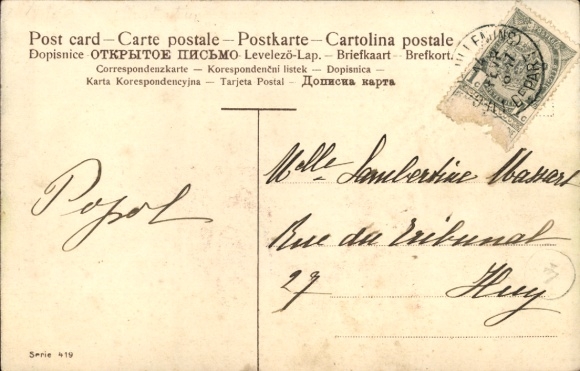 Post card – Carte postale – Postkarte – Cartolina postale
Dopisnice ОТКРЫТОЕ ПИСЬМО Levelezö-Lap. – Briefkaart – Brefkort.
Correspondenzkarte – Korespondenční listek – Dopisnica –
Karta Korespondencyjna – Tarjeta Postal – Дописна карта
Popol
Melle Lambertine Massart
Rue du Tribunal
27 Huy
Serie 419